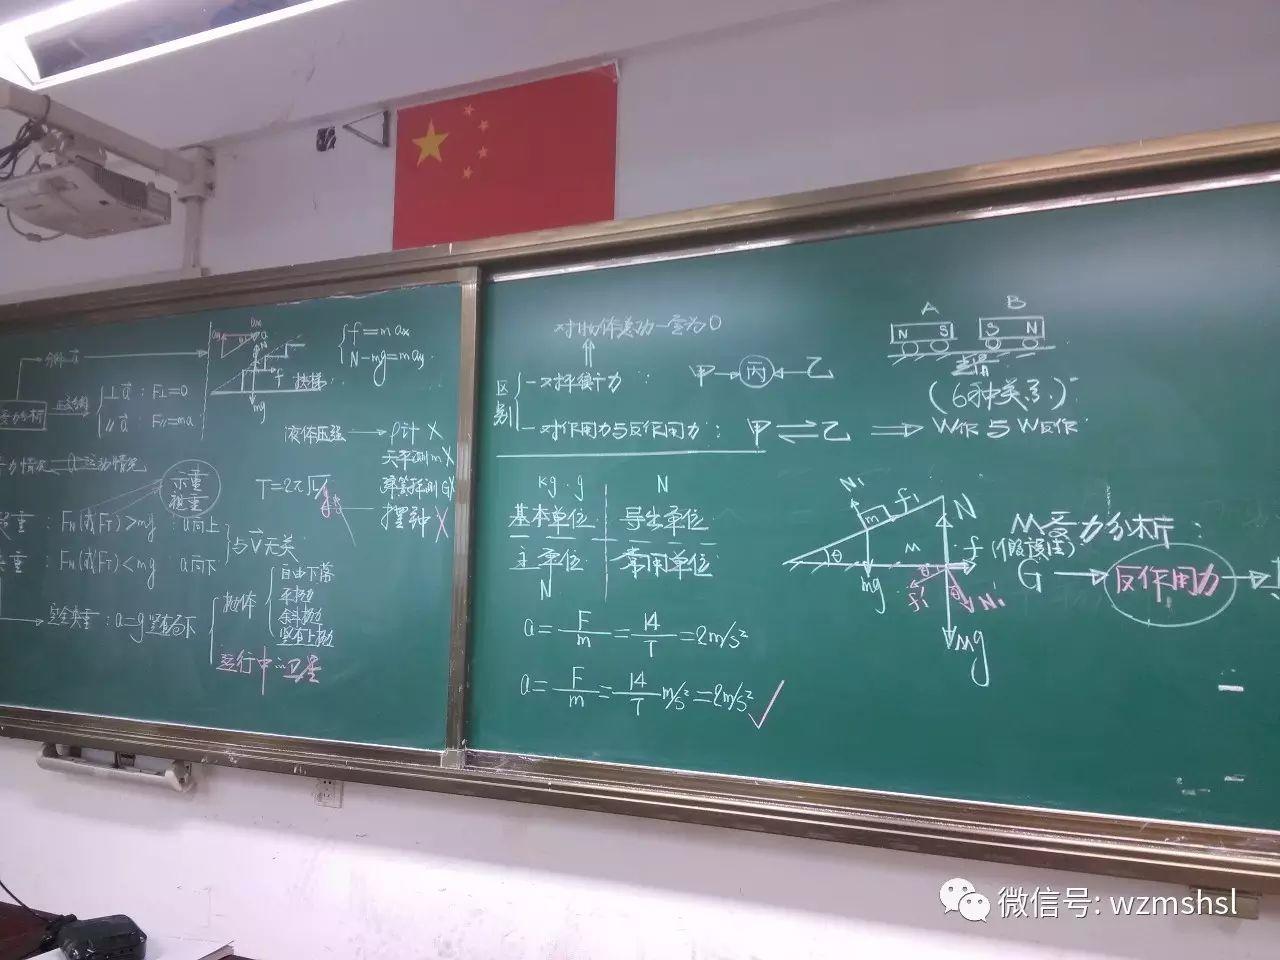 分解 a⃗
受力分析
正交分解
⊥a⃗：F⊥=0
∥a⃗：F∥=ma
ax
ay
a
N
f
mg
扶梯
f=max
N-mg=may
液体压强 → ρ计 X
天平测m X
弹簧秤测G X
摆钟 X
T=2π√L/g
力情况 运动情况
示重
视重
超重：FN(或FT)>mg a向上
失重：FN(或FT)<mg a向下
与v⃗无关
完全失重：a=g 竖直向下
抛体
自由下落
平抛
斜抛
竖直上抛
运行中的卫星
对物体总功一定为0
区别
一对平衡力： 甲→丙←乙
一对作用力与反作用力： 甲⇌乙 ⇒ W作与W反作
A B
N S S N
(6种关系)
kg·g N
基本单位 导出单位
主单位 常用单位
N
a=F/m=14/7=2m/s²
a=F/m=14/7 m/s²=2m/s² ✓
N₁
m
f₁
θ
mg
M
N
f(假设图)
f₁'
N₁'
θ
Mg
M受力分析：
G → 反作用力 →
微信号: wzmshsl